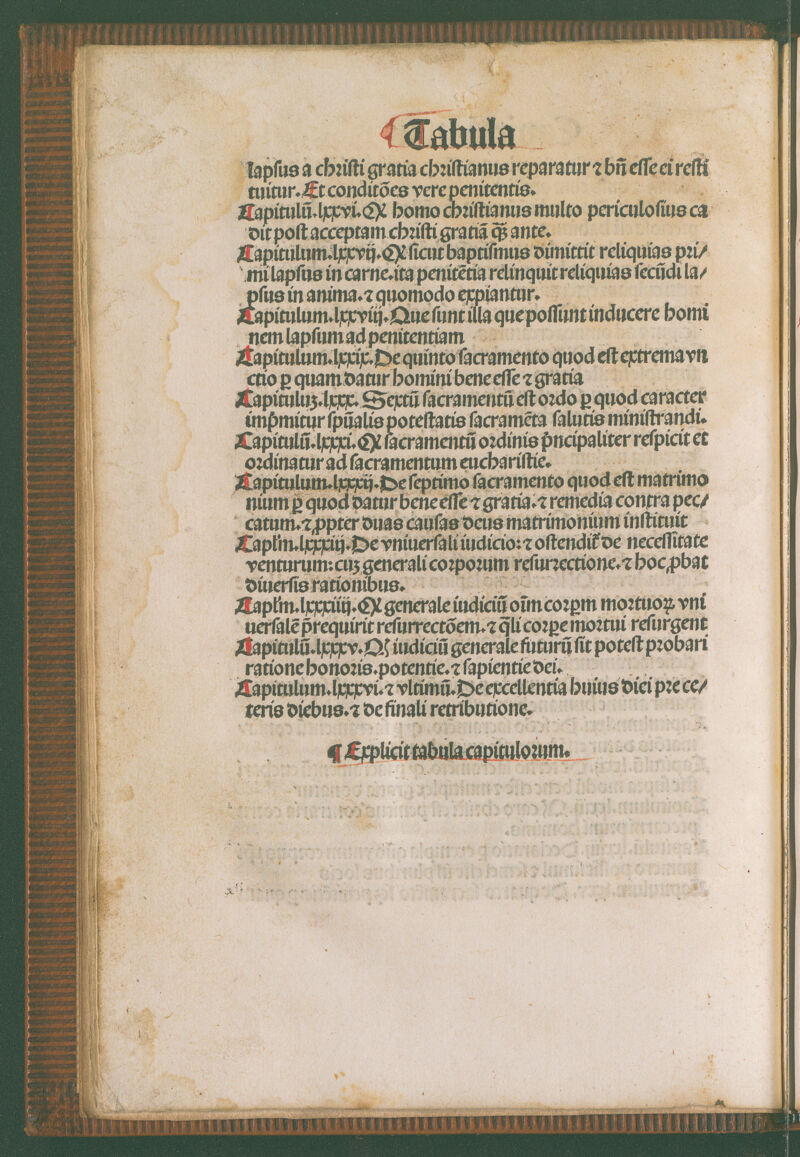 ¶ Tabula
lapſus a chꝛiſti gratia chꝛiſtianus reparatur ⁊ bn̄ eſſe ei reſti
tuitur. Et conditōes vere penitentis.
Capitulū.lxxvi. Qꝫ homo chꝛiſtianus multo periculoſius ca
dit poſt acceptam chꝛiſti gratiā q̄ꝫ ante.
Capitulum.lxxvij. Qꝫ ſicut baptiſmus dimittit reliquias pꝛi/
mi lapſus in carne. ita penitētia relinquit reliquias ſecūdi la/
pſus in anima. ⁊ quomodo expiantur.
Capitulum.lxxviij. Que ſunt illa que poſſunt inducere homi
nem lapſum ad penitentiam
Capitulum.lxxix. De quinto ſacramento quod eſt extrema vn
ctio ꝑ quam datur homini bene eſſe ⁊ gratia
Capituluꝫ.lxxx. Sextū ſacramentū eſt oꝛdo ꝑ quod caracter
imp̄mitur ſpūalis poteſtatis ſacramēta ſalutis miniſtrandi.
Capitulū.lxxxi. Qꝫ ſacramentū oꝛdinis p̄ncipaliter reſpicit et
oꝛdinatur ad ſacramentum euchariſtie.
Capitulum.lxxxij. De ſeptimo ſacramento quod eſt matrimo
nium ꝑ quod datur bene eſſe ⁊ gratia. ⁊ remedia contra pec/
catum. ⁊ ꝓpter duas cauſas deus matrimonium inſtituit
Caplꝫm.lxxxiij. De vniuerſali iudicio: ⁊ oſtendit̄ de neceſſitate
venturum: cuꝫ generali coꝛpoꝛum reſurꝛectione. ⁊ hoc ꝓbat
diuerſis rationibus.
Capl̄m.lxxxiiij. Qꝫ generale iudiciū oīm coꝛꝑm moꝛtuoꝝ vni
uerſalē p̄requirit reſurrectōem. ⁊ q̄li coꝛꝑe moꝛtui reſurgent
Capitulū.lxxxv. Qꝫ iudiciū generale futurū ſit poteſt pꝛobari
ratione honoꝛis. potentie. ⁊ ſapientie dei.
Capitulum.lxxxvi. ⁊ vltimū. De excellentia huius diei pꝛe ce/
teris diebus. ⁊ de finali retributione.
¶ Explicit tabula capituloꝛum.